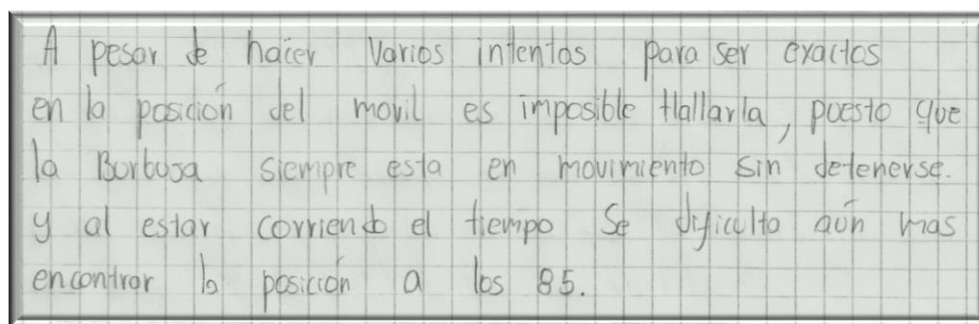 A pesar de hacer varios intentos para ser exactos
en la posición del movil es imposible Hallarla, puesto que
la Burbuja siempre esta en movimiento sin detenerse.
y al estar corriendo el tiempo se dificulta aún mas
encontrar la posición a los 85.